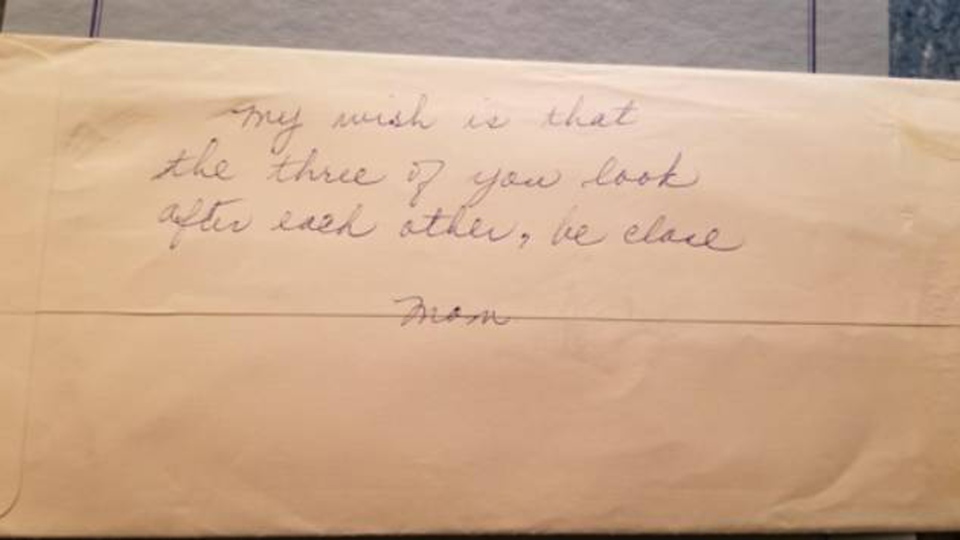 My wish is that
the three of you look
after each other, be close
Mom